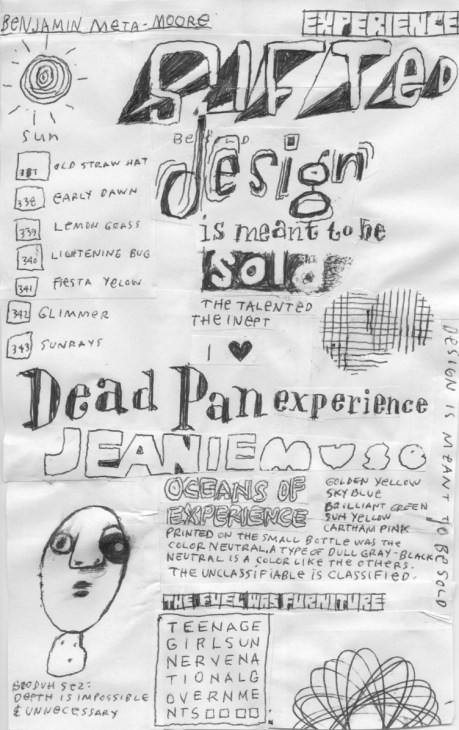 BENJAMIN META-MOORE
EXPERIENCE
SIFTED
SUN
design
is meant to be
SOLD
337 OLD STRAW HAT
338 EARLY DAWN
339 LEMON GRASS
340 LIGHTENING BUG
341 FIESTA YELOW
342 GLIMMER
343 SUNRAYS
THE TALENTED
THE INEPT
I ♥
Dead Pan experience
JEANIE MUSO
DESIGN IS MEANT TO BE SOLD
OCEANS OF
EXPERIENCE
GOLDEN YELLOW
SKY BLUE
BRILLIANT GREEN
SUN YELLOW
CARTHAM PINK
PRINTED ON THE SMALL BOTTLE WAS THE
COLOR NEUTRAL, A TYPE OF DULL GRAY-BLACK
NEUTRAL IS A COLOR LIKE THE OTHERS.
THE UNCLASSIFIABLE IS CLASSIFIED.
THE FUEL WAS FURNITURE
TEENAGE
GIRLSUN
NERVENA
TIONALG
OVERNME
NTS
SEZ:
DEPTH IS IMPOSSIBLE
& UNNECESSARY